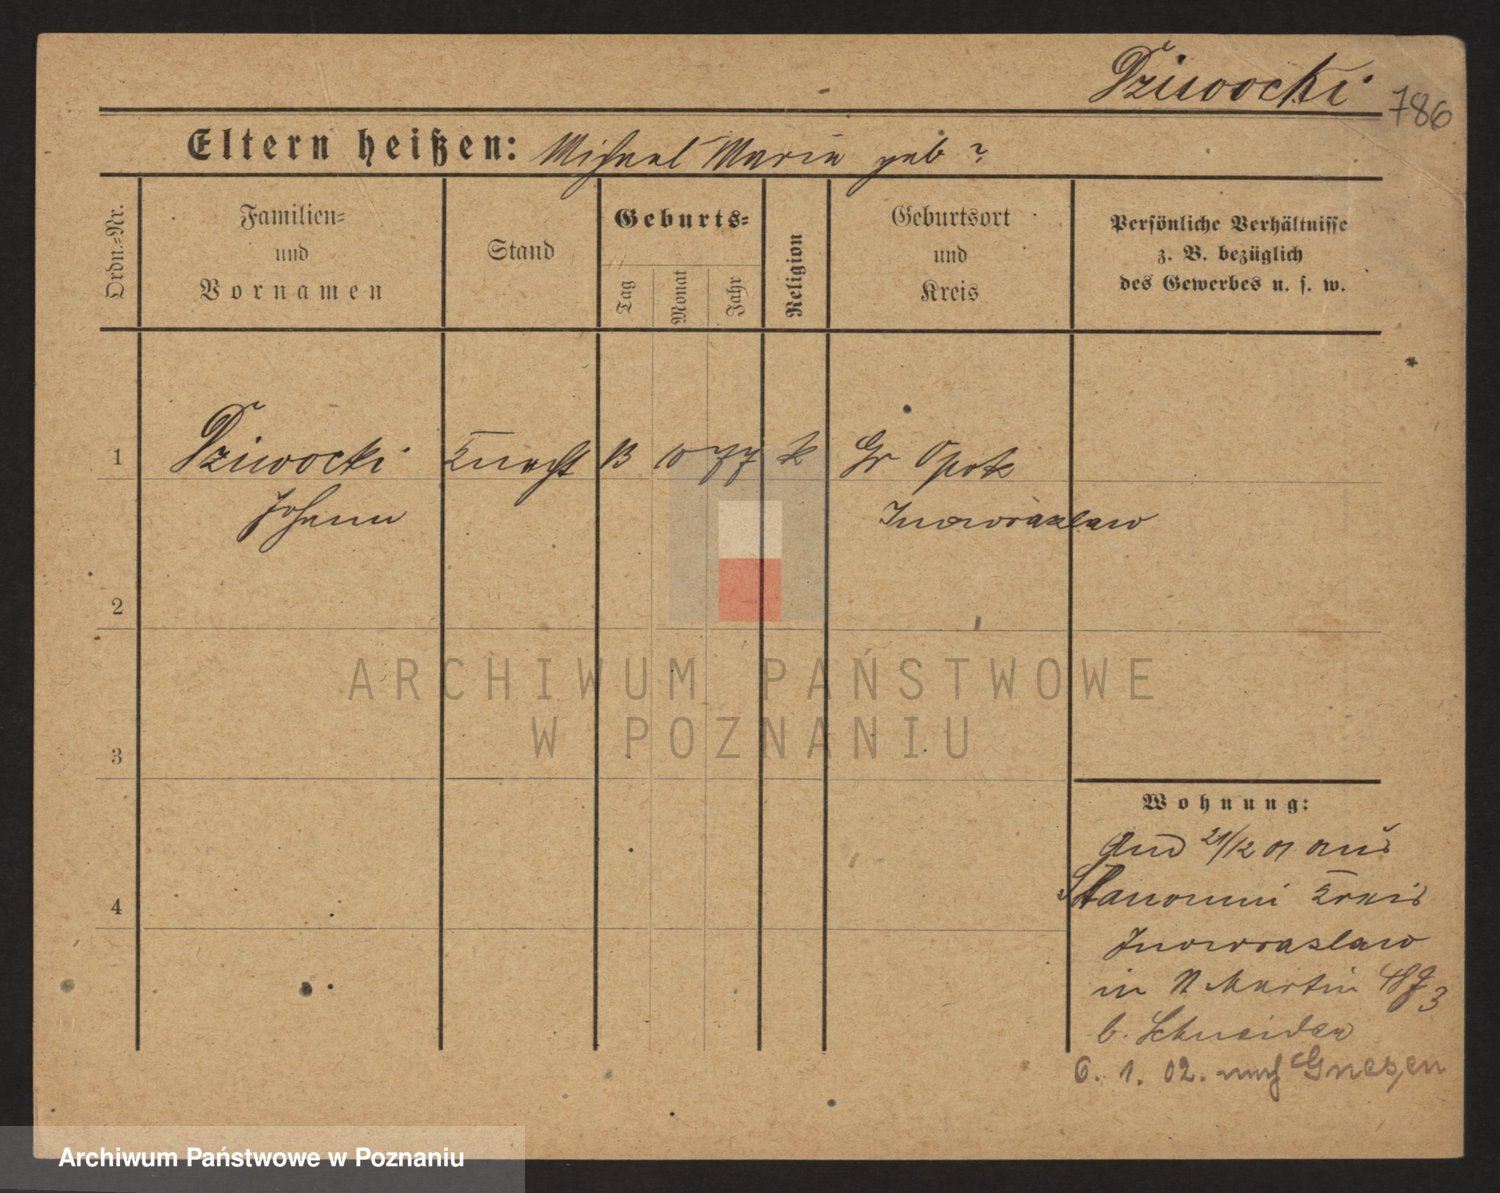 Dziwocki
786
Eltern heißen: Michael Maria geb ?
Ordn.-Nr.
Familien-
und
Vornamen
Stand
Geburts-
Tag
Monat
Jahr
Religion
Geburtsort
und
Kreis
Persönliche Verhältnisse
z. B. bezüglich
des Gewerbes u. s. w.
1 Dziwocki Knecht 13 10 77 k Gr Opok
Johann Inowrazlaw
2
3
4
Wohnung:
21/12 01 aus
Stanomin Kreis
Inowrazlaw
in St Martin
b. Schneider
6. 1. 02. nach Gnesen
ARCHIWUM PAŃSTWOWE
W POZNANIU
Archiwum Państwowe w Poznaniu